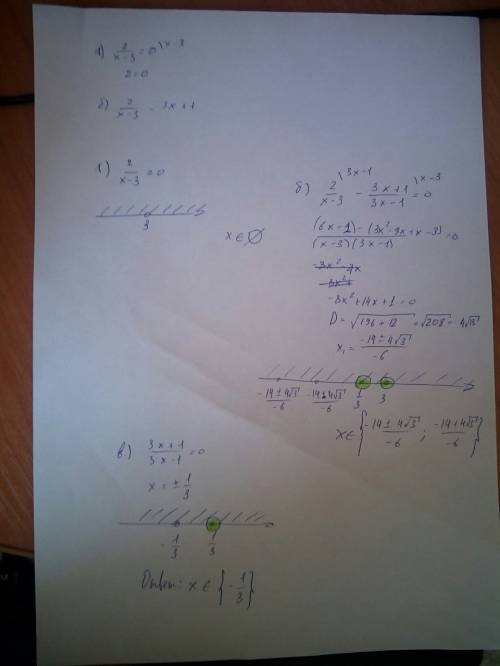 а) 2/(x-3) = 0 \x-3
2=0
б) 2/(x-3) - 3x+1
1) 2/(x-3) = 0
3
x ∈ ∅
б) 2/(x-3) \3x-1 - (3x+1)/(3x-1) \x-3 = 0
((6x-2)-(3x²-9x+x-3))/((x-3)(3x-1)) = 0
-3x²+14x+1=0
D = √(196+12) = √208 = 4√13
x₁ = (-14±4√13)/-6
(-14±4√13)/-6 (-14±4√13)/-6 1/3 3
x ∈ {(-14±4√13)/-6 ; (-14+4√13)/-6}
в) (3x+1)/(3x-1) = 0
x = ±1/3
-1/3 1/3
Ответ: x ∈ {-1/3}